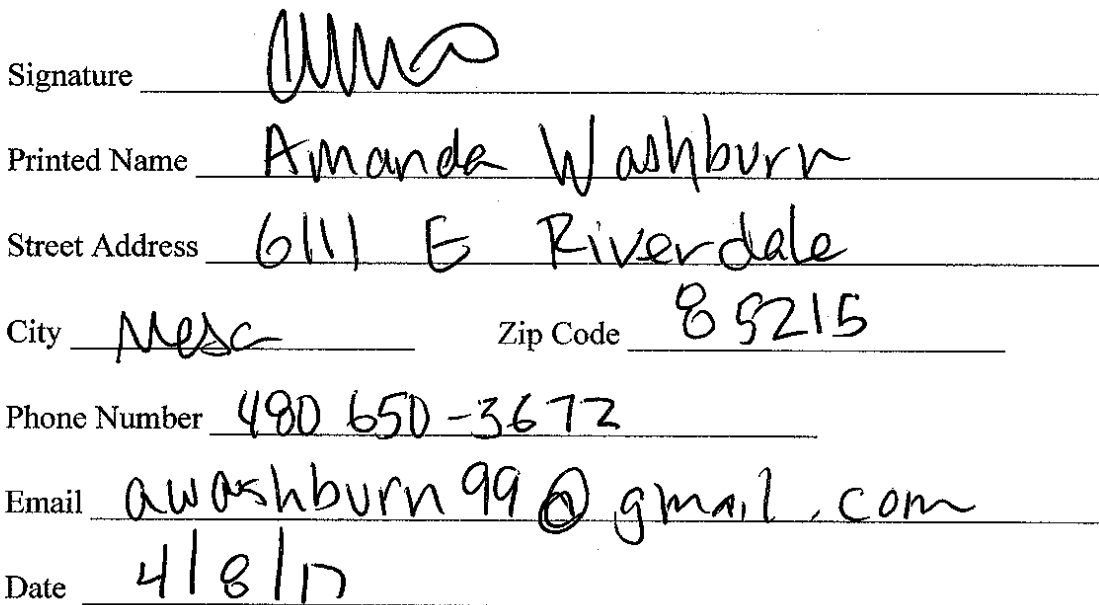 Signature
Printed Name Amanda Washburn
Street Address 6111 E Riverdale
City Mesa Zip Code 85215
Phone Number 480 650-3672
Email awashburn99@gmail.com
Date 4/8/17